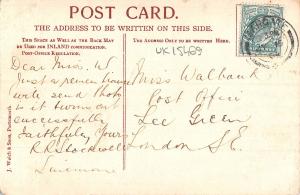 POST CARD.
THE ADDRESS TO BE WRITTEN ON THIS SIDE.
THIS SPACE AS WELL AS THE BACK MAY
BE USED FOR INLAND COMMUNICATION.
POST-OFFICE REGULATION.
THE ADDRESS ONLY TO BE WRITTEN HERE.
UK15469
Dear Miss W
Just a
will send Photo
if it turns out
successfully
Faithfully Yours
R.R. Stockwell
Miss Walbank
Post Office
Lee Green
London S.E.
J. Welch & Sons, Portsmouth.